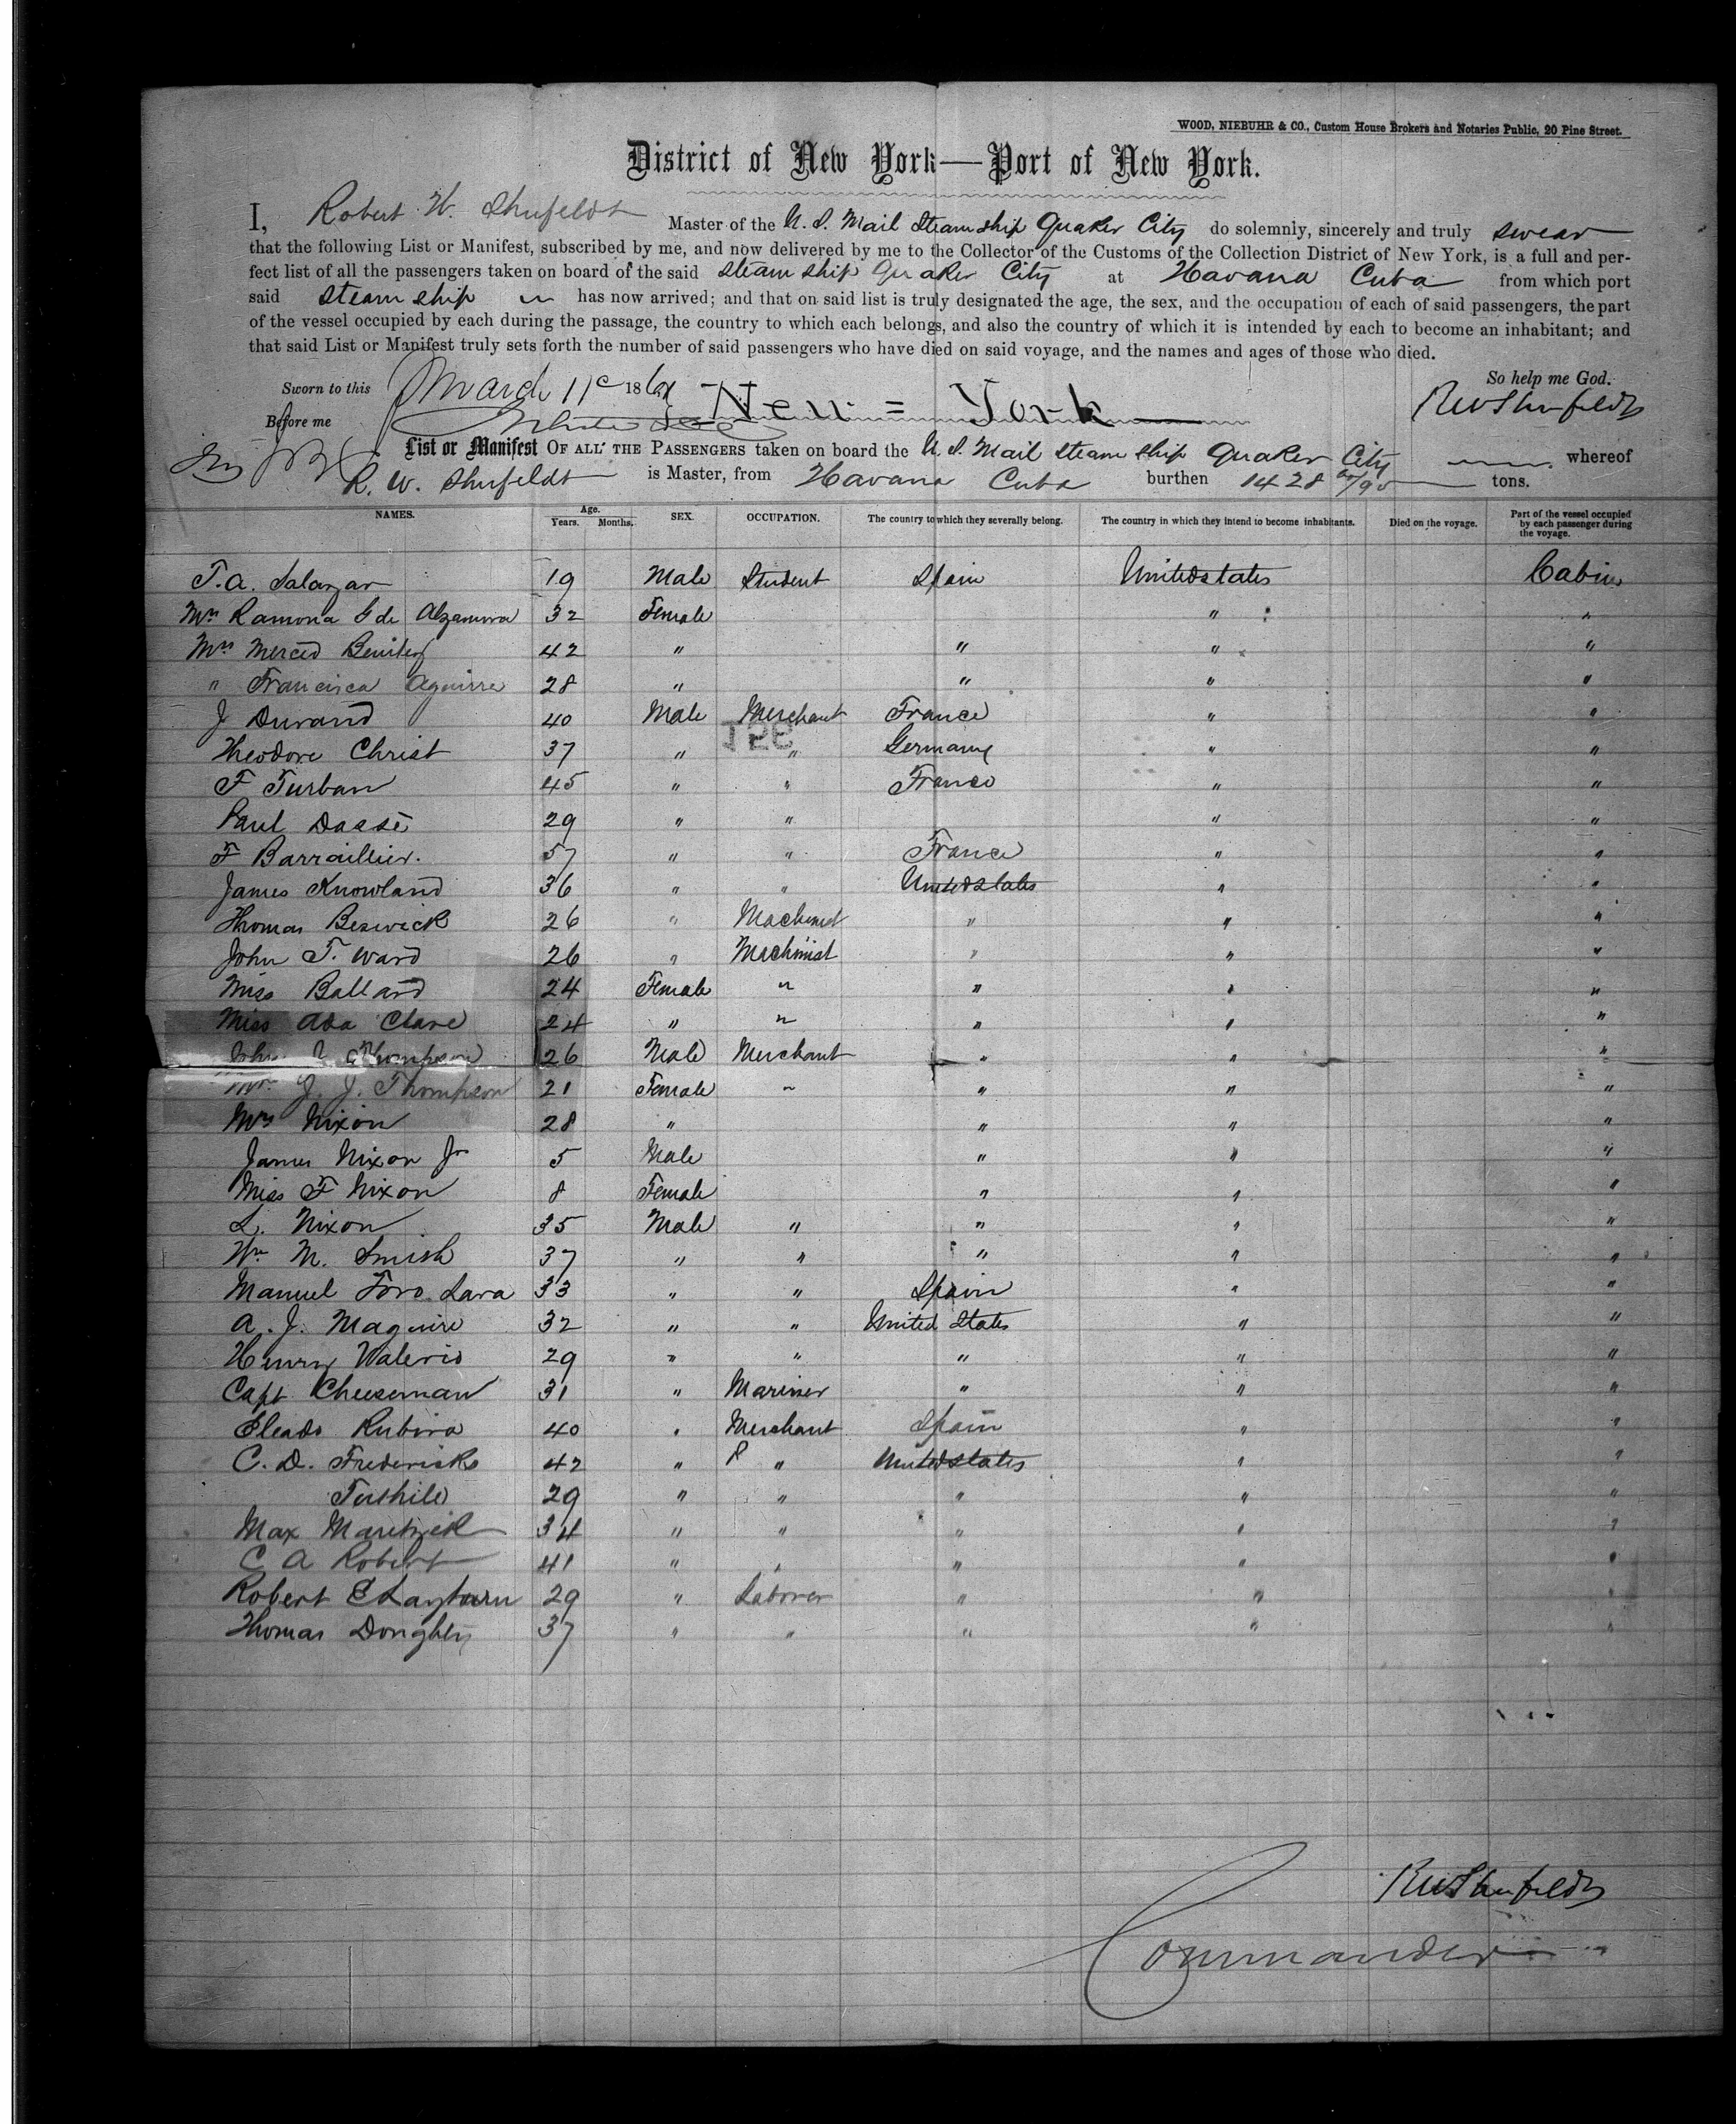 WOOD, NIEBUHR & CO., Custom House Brokers and Notaries Public, 20 Pine Street.
District of New York—Port of New York.
I, Robert W. Shufeldt Master of the U. S. Mail Steam ship Quaker City do solemnly, sincerely and truly swear
that the following List or Manifest, subscribed by me, and now delivered by me to the Collector of the Customs of the Collection District of New York, is a full and per-
fect list of all the passengers taken on board of the said Steam ship Quaker City at Havana Cuba from which port
said Steam ship " has now arrived; and that on said list is truly designated the age, the sex, and the occupation of each of said passengers, the part
of the vessel occupied by each during the passage, the country to which each belongs, and also the country of which it is intended by each to become an inhabitant; and
that said List or Manifest truly sets forth the number of said passengers who have died on said voyage, and the names and ages of those who died.
Sworn to this March 11 1861 New = York So help me God.
Before me RWShufeldt
List or Manifest OF ALL THE PASSENGERS taken on board the U. S. Mail Steam Ship Quaker City whereof
R. W. Shufeldt is Master, from Havana Cuba burthen 1428 tons.
NAMES. Age. Years. Months. SEX. OCCUPATION. The country to which they severally belong. The country in which they intend to become inhabitants. Died on the voyage. Part of the vessel occupied by each passenger during the voyage.
T. A. Salazar 19 Male Student Spain United States Cabin
Mrs Ramona G de Alzamora 32 Female " "
Mrs Merced Benitez 42 " " " "
" Francisca Aguirre 28 " " " "
J Durand 40 Male Merchant France " "
Theodore Christ 37 " " Germany " "
F Turban 45 " " France " "
Paul Dasse 29 " " " "
F Barraillier. 57 " " France " "
James Knowland 36 " " United States " "
Thomas Beswick 26 " Machinist " " "
John T. Ward 26 " Machinist " " "
Miss Ballard 24 Female " " " "
Miss Ada Clare 24 " " " " "
John J Thompson 26 Male Merchant " " "
Mrs J. J. Thompson 21 Female " " " "
Mrs Nixon 28 " " " "
James Nixon Jr 5 Male " " "
Miss F Nixon 8 Female " " "
L. Nixon 35 Male " " " "
Wm M. Smith 37 " " " " "
Manuel Toro Lara 33 " " Spain " "
A. J. Maguire 32 " " United States " "
Henry Valerio 29 " " " " "
Capt Cheeseman 31 " Mariner " " "
Eleado Rubira 40 " Merchant Spain " "
C. D. Fredericks 42 " " United States " "
Tuthill 29 " " " " "
Max Maretzek 34 " " " " "
C A Robert 41 " " " " "
Robert Clayburn 29 " Laborer " " "
Thomas Doughty 37 " " " " "
RWShufeldt
Commander